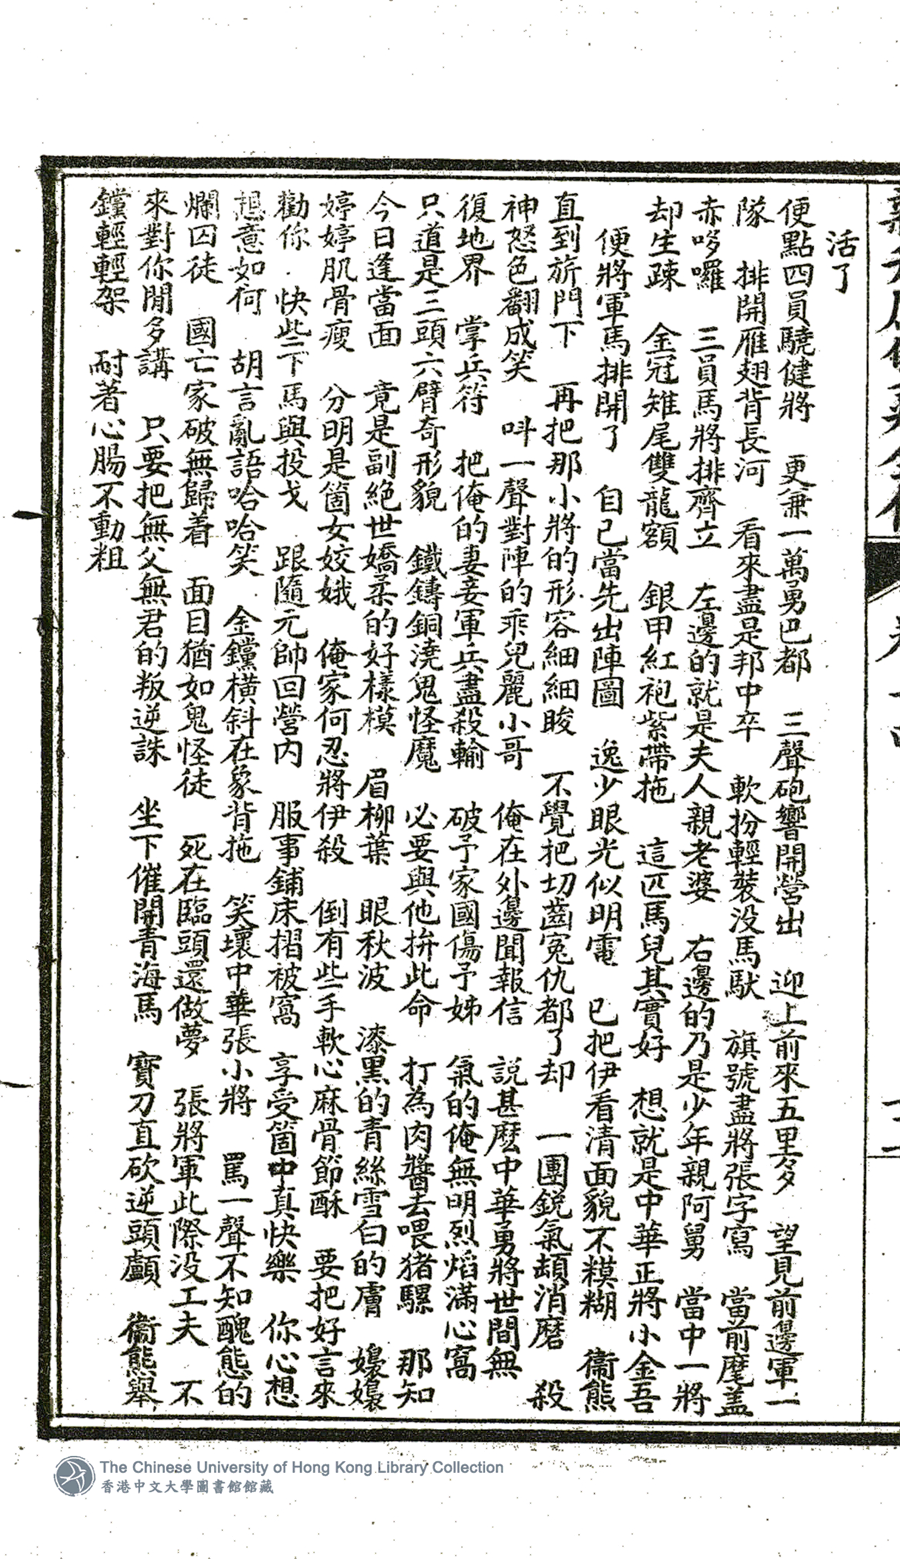 活了
便點四員驍健將　更兼一萬勇巴都　三聲砲響開營出　迎上前來五里多　望見前邊軍一
隊　排開雁翅背長河　看來盡是邦中卒　軟扮輕裝没馬馱　旗號盡將張字寫　當前麾蓋
赤哆囉　三員馬將排齊立　左邊的就是夫人親老婆　右邊的乃是少年親阿舅　當中一將
却生疎　金冠雉尾雙龍額　銀甲紅袍紫帶拖　這匹馬兒其實好　想就是中華正將小金吾
便將軍馬排開了　自己當先出陣圖　逸少眼光似明電　已把伊看清面貌不糢糊　衞熊
直到旂門下　再把那小將的形容細細睃　不覺把切齒寃仇都了却　一團銳氣頓消磨　殺
神怒色翻成笑　呌一聲對陣的乖兒麗小哥　俺在外邊聞報信　說甚麽中華勇將世間無
復地界　掌兵符　把俺的妻妾軍兵盡殺輸　破予家國傷予姊　氣的俺無明烈焰滿心窩
只道是三頭六臂奇形貌　鐵鑄銅澆鬼怪魔　必要與他拚此命　打為肉醬去喂猪騾　那知
今日逢當面　竟是副絕世嬌柔的好樣模　眉柳葉　眼秋波　漆黑的青絲雪白的膚　嬝嬝
婷婷肌骨瘦　分明是箇女姣娥　俺家何忍將伊殺　倒有些手軟心麻骨節酥　要把好言來
勸你　快些下馬與投戈　跟隨元帥回營内　服事鋪床摺被窩　享受箇中真快樂　你心想
想意如何　胡言亂語哈哈笑　金鐺橫斜在象背拖　笑壞中華張小將　罵一聲不知醜態的
爛囚徒　國亡家破無歸着　面目猶如鬼怪徒　死在臨頭還做夢　張將軍此際没工夫　不
來對你閒多講　只要把無父無君的叛逆誅　坐下催開青海馬　寶刀直砍逆頭顱　衞熊舉
鐺輕輕架　耐著心腸不動粗
The Chinese University of Hong Kong Library Collection
香港中文大學圖書館館藏